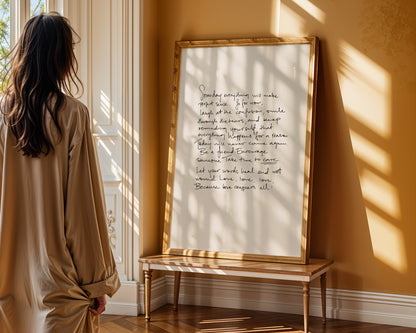 Someday everything will make
perfect sense. So for now,
laugh at the confusion, smile
through the tears and keep
reminding yourself that
everything happens for a reason.
Today will never come again.
Be a friend. Encourage
someone. Take time to care.
Let your words heal and not
wound. Love love love
Because love conquers all!